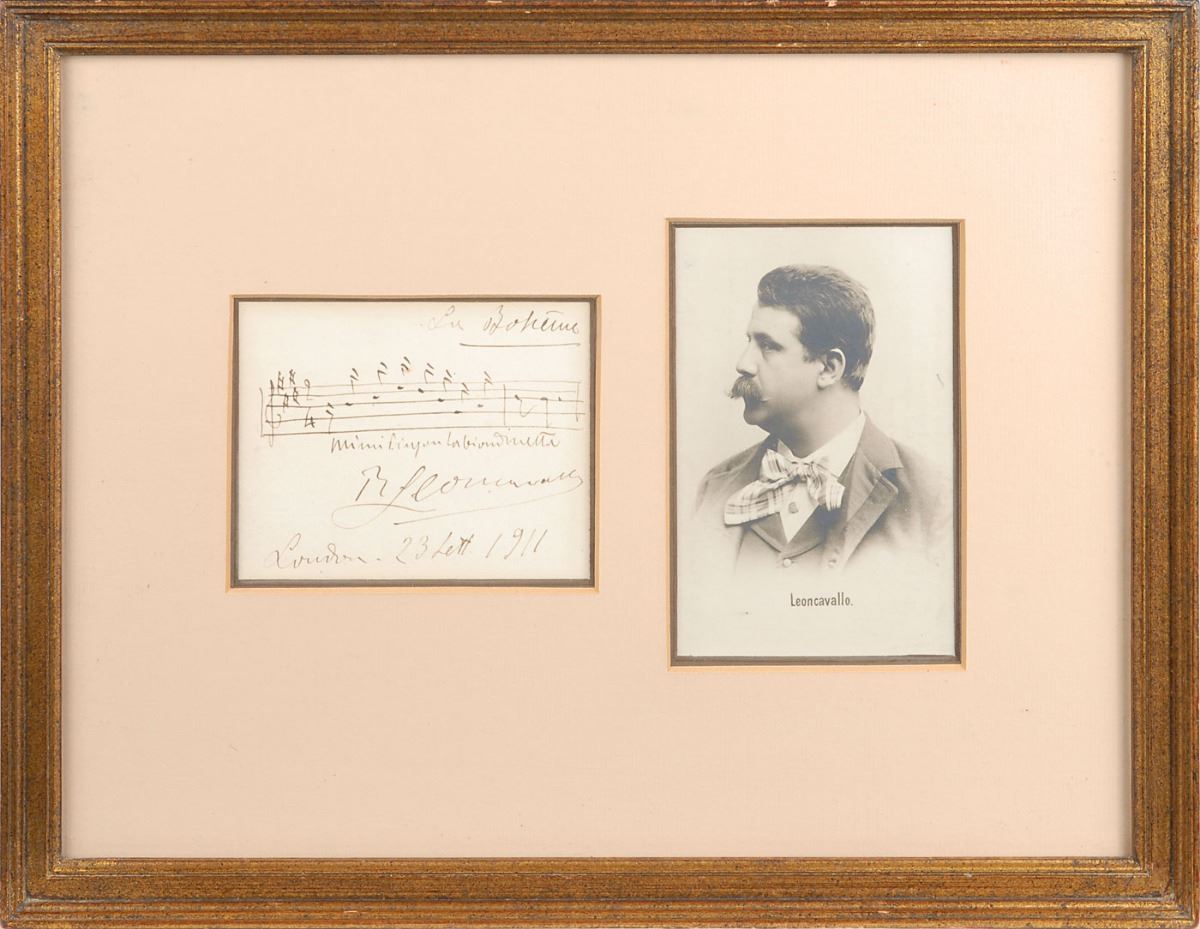 La Bohème
2
4
Mimi Pinson la biondinetta
R Leoncavallo
London. 23 Sett. 1911
Leoncavallo.